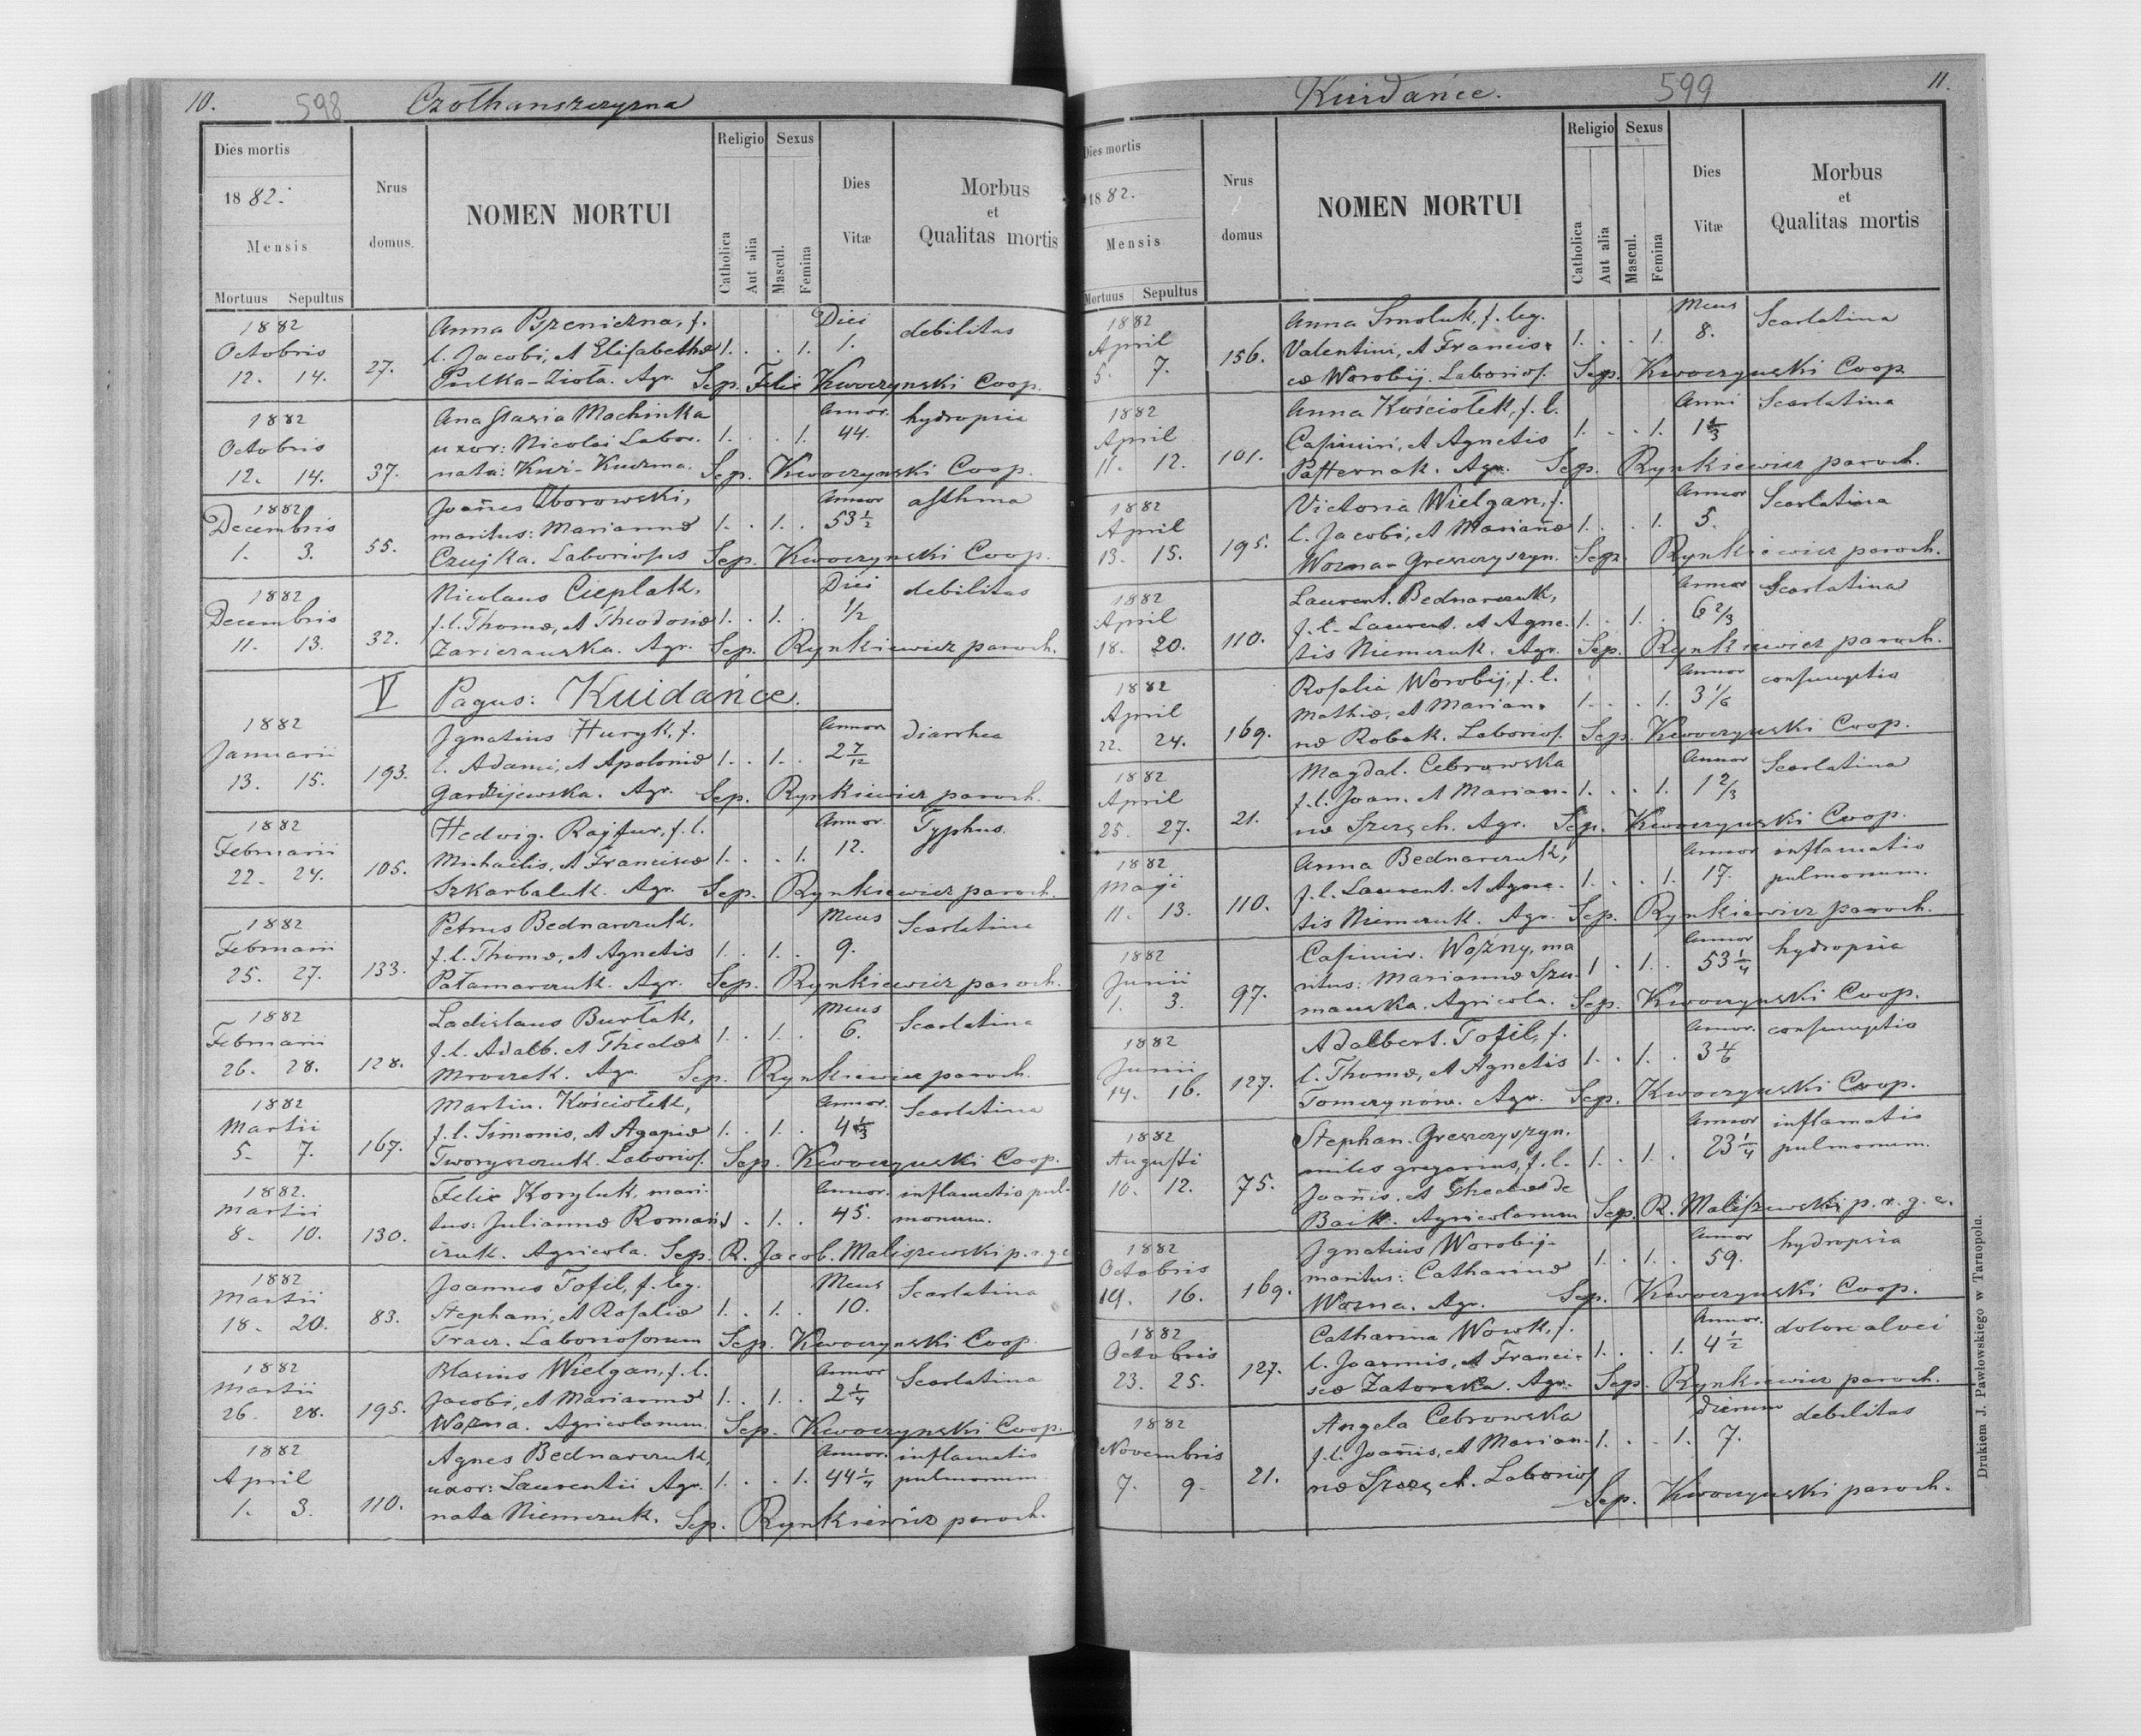 10. 598 Czołhanszczyzna
Dies mortis
1882.
Mensis
Mortuus Sepultus
Nrus
domus.
NOMEN MORTUI
Religio Sexus
Catholica
Aut alia
Mascul.
Femina
Dies
Vitæ
Morbus
et
Qualitas mortis
1882 Anna Pszeniczna, f. Diei debilitas
Octobris l. Jacobi, et Elisabethæ 1. . . 1. 1.
12. 14. 27. Pulka-Zioła. Agr. Sep. Felix Kwoczynski Coop.
1882 Anastasia Machinka Annor. hydropsia
Octobris uxor: Nicolai Labor. 1. . . 1. 44.
12. 14. 37. nata: Kuz-Kuzma. Sep. Kwoczynski Coop.
1882 Joañes Oborowski, Annor asthma
Decembris maritus: Mariannæ 1. . 1. . 53 1/2
1. 3. 55. Czujka. Laboriosus Sep. Kwoczynski Coop.
1882 Nicolaus Cieplak, Diei debilitas
Decembris f.l. Thomæ, et Theodosiæ 1. . 1. . 1/2
11. 13. 32. Zariczanska. Agr. Sep. Rynkiewicz paroch.
V Pagus: Kuidańce.
1882 Ignatius Huryk, f. Annor diarrhea
Januarii l. Adami, et Apoloniæ 1. . 1. . 2 7/12
13. 15. 193. Gardzijewska. Agr. Sep. Rynkiewicz paroch.
1882 Hedvig. Rajfur, f.l. Annor. Typhus.
Februarii Michaelis, et Franciscæ 1. . . 1. 12.
22. 24. 105. Szkarbaluk. Agr. Sep. Rynkiewicz paroch.
1882 Petrus Bednarczuk, Mens Scarlatina
Februarii f.l. Thomæ, et Agnetis 1. . 1. . 9.
25. 27. 133. Pałamarczuk. Agr. Sep. Rynkiewicz paroch.
1882 Ladislaus Burłak, Mens Scarlatina
Februarii f.l. Adalb. et Theclæ 1. . 1. . 6.
26. 28. 128. Mroczek. Agr. Sep. Rynkiewicz paroch.
1882 Martin. Kościołek, Annor. Scarlatina
Martii f.l. Simonis, et Agapiæ 1. . 1. . 4 1/3
5. 7. 167. Tworyszczuk. Laborios. Sep. Kwoczynski Coop.
1882. Felix Koryluk, mari- Annor. inflamatio pul-
Martii tus: Juliannæ Romań 1 . 1. . 45. monum.
8. 10. 130. czuk. Agricola. Sep. R. Jacob. Maliszewski p. r. g. c.
1882 Joannes Tofil, f. leg. Mens Scarlatina
Martii Stephani, et Rosaliæ 1. . 1. . 10.
18. 20. 83. Tracz. Laboriosorum Sep. Kwoczynski Coop
1882 Blasius Wielgan, f.l. Annor Scarlatina
Martii Jacobi, et Mariannæ 1. . 1. . 2 1/4
26. 28. 195. Wozna. Agricolarum. Sep. Kwoczynski Coop.
1882 Agnes Bednarczuk, Annor. inflamatio
April uxor: Laurentii Agr. 1. . . 1. 44 1/4 pulmonum
1. 3. 110. nata Niemczuk. Sep. Rynkiewicz paroch.
Kuidańce. 599 11.
Dies mortis
1882.
Mensis
Mortuus Sepultus
Nrus
domus
NOMEN MORTUI
Religio Sexus
Catholica
Aut alia
Mascul.
Femina
Dies
Vitæ
Morbus
et
Qualitas mortis
1882 Anna Smoluk, f. leg. Mens Scarlatina
April Valentini, et Francis- 1. . . 1. 8.
5. 7. 156. cæ Worobij. Laborios. Sep. Kwoczynski Coop
1882 Anna Kościołek, f. l. Anni Scarlatina
April Casimiri, et Agnetis 1. . . 1. 1 1/3
11. 12. 101. Pasternak. Agr. Sep. Rynkiewicz paroch.
1882 Victoria Wielgan, f. Annor Scarlatina
April l. Jacobi, et Mariañæ 1. . . 1. 5.
13. 15. 195. Wozna-Greszczyszyn. Sep. Rynkiewicz paroch.
1882 Laurent. Bednarczuk, Annor Scarlatina
April f.l. Laurent. et Agne- 1. . 1. . 6 2/3
18. 20. 110. tis Niemczuk. Agr. Sep. Rynkiewicz paroch.
1882 Rosalia Worobij, f. l. Annor consumptio
April Mathiæ, et Marian- 1. . . 1. 3 1/6
22. 24. 169. næ Robak. Laborios. Sep. Kwoczynski Coop.
1882 Magdal. Cebrowska Annor Scarlatina
April f.l. Joan. et Marian- 1. . . 1. 1 2/3
25. 27. 21. næ Szerzch. Agr. Sep. Kwoczynski Coop.
1882 Anna Bednarczuk, Annor inflamatio
Maji f.l. Laurent. et Agne- 1. . . 1. 17. pulmonum.
11. 13. 110. tis Niemczuk. Agr. Sep. Rynkiewicz paroch.
1882 Casimir. Woźny, ma Annor hydropsia
Junii ritus: Mariannæ Szu- 1 . 1. . 53 1/4
1. 3. 97. manska. Agricola. Sep. Kwoczynski Coop.
1882 Adalbert. Tofil, f. Annor. consumptio
Junii l. Thomæ, et Agnetis 1. . 1. . 3 1/6
14. 16. 127. Tomczynów. Agr. Sep. Kwoczynski Coop.
1882 Stephan. Greszczyszyn. Annor inflamatio
Augusti miles gregarius, f.l. 1. . 1. . 23 1/4 pulmonum.
10. 12. 75. Joañis, et Theclæ de
Baik. Agricolarum Sep. R. Maliszewski p. r. g. c.
1882 Ignatius Worobij- Annor hydropsia
Octobris maritus: Catharinæ 1. . 1. . 59.
14. 16. 169. Wozna. Agr. Sep. Kwoczynski Coop.
1882 Catharina Wowk, f. Annor. dolore alvei
Octobris l. Joannis, et Franci- 1. . . 1. 4 1/2
23. 25. 127. scæ Zatorska. Agr. Sep. Rynkiewicz paroch.
1882 Angela Cebrowska Dierum debilitas
Novembris f.l. Joañis, et Marian- 1. . . 1. 7.
7. 9. 21. næ Szerzch. Laborios
Sep. Kwoczynski paroch.
Drukiem J. Pawłowskiego w Tarnopolu.